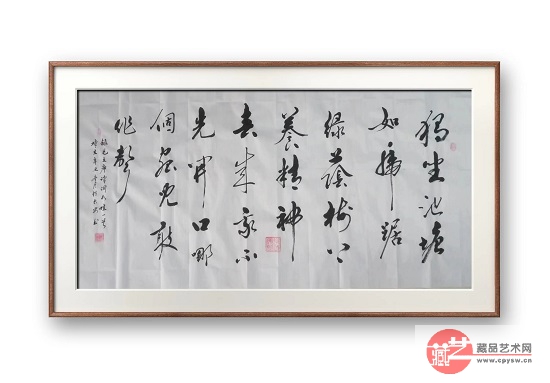 独坐池塘
如虎踞
绿荫树下
养精神
春来我不
先开口哪
個蟲儿敢
作声
藏艺
藏品艺术网
www.cpysw.cn